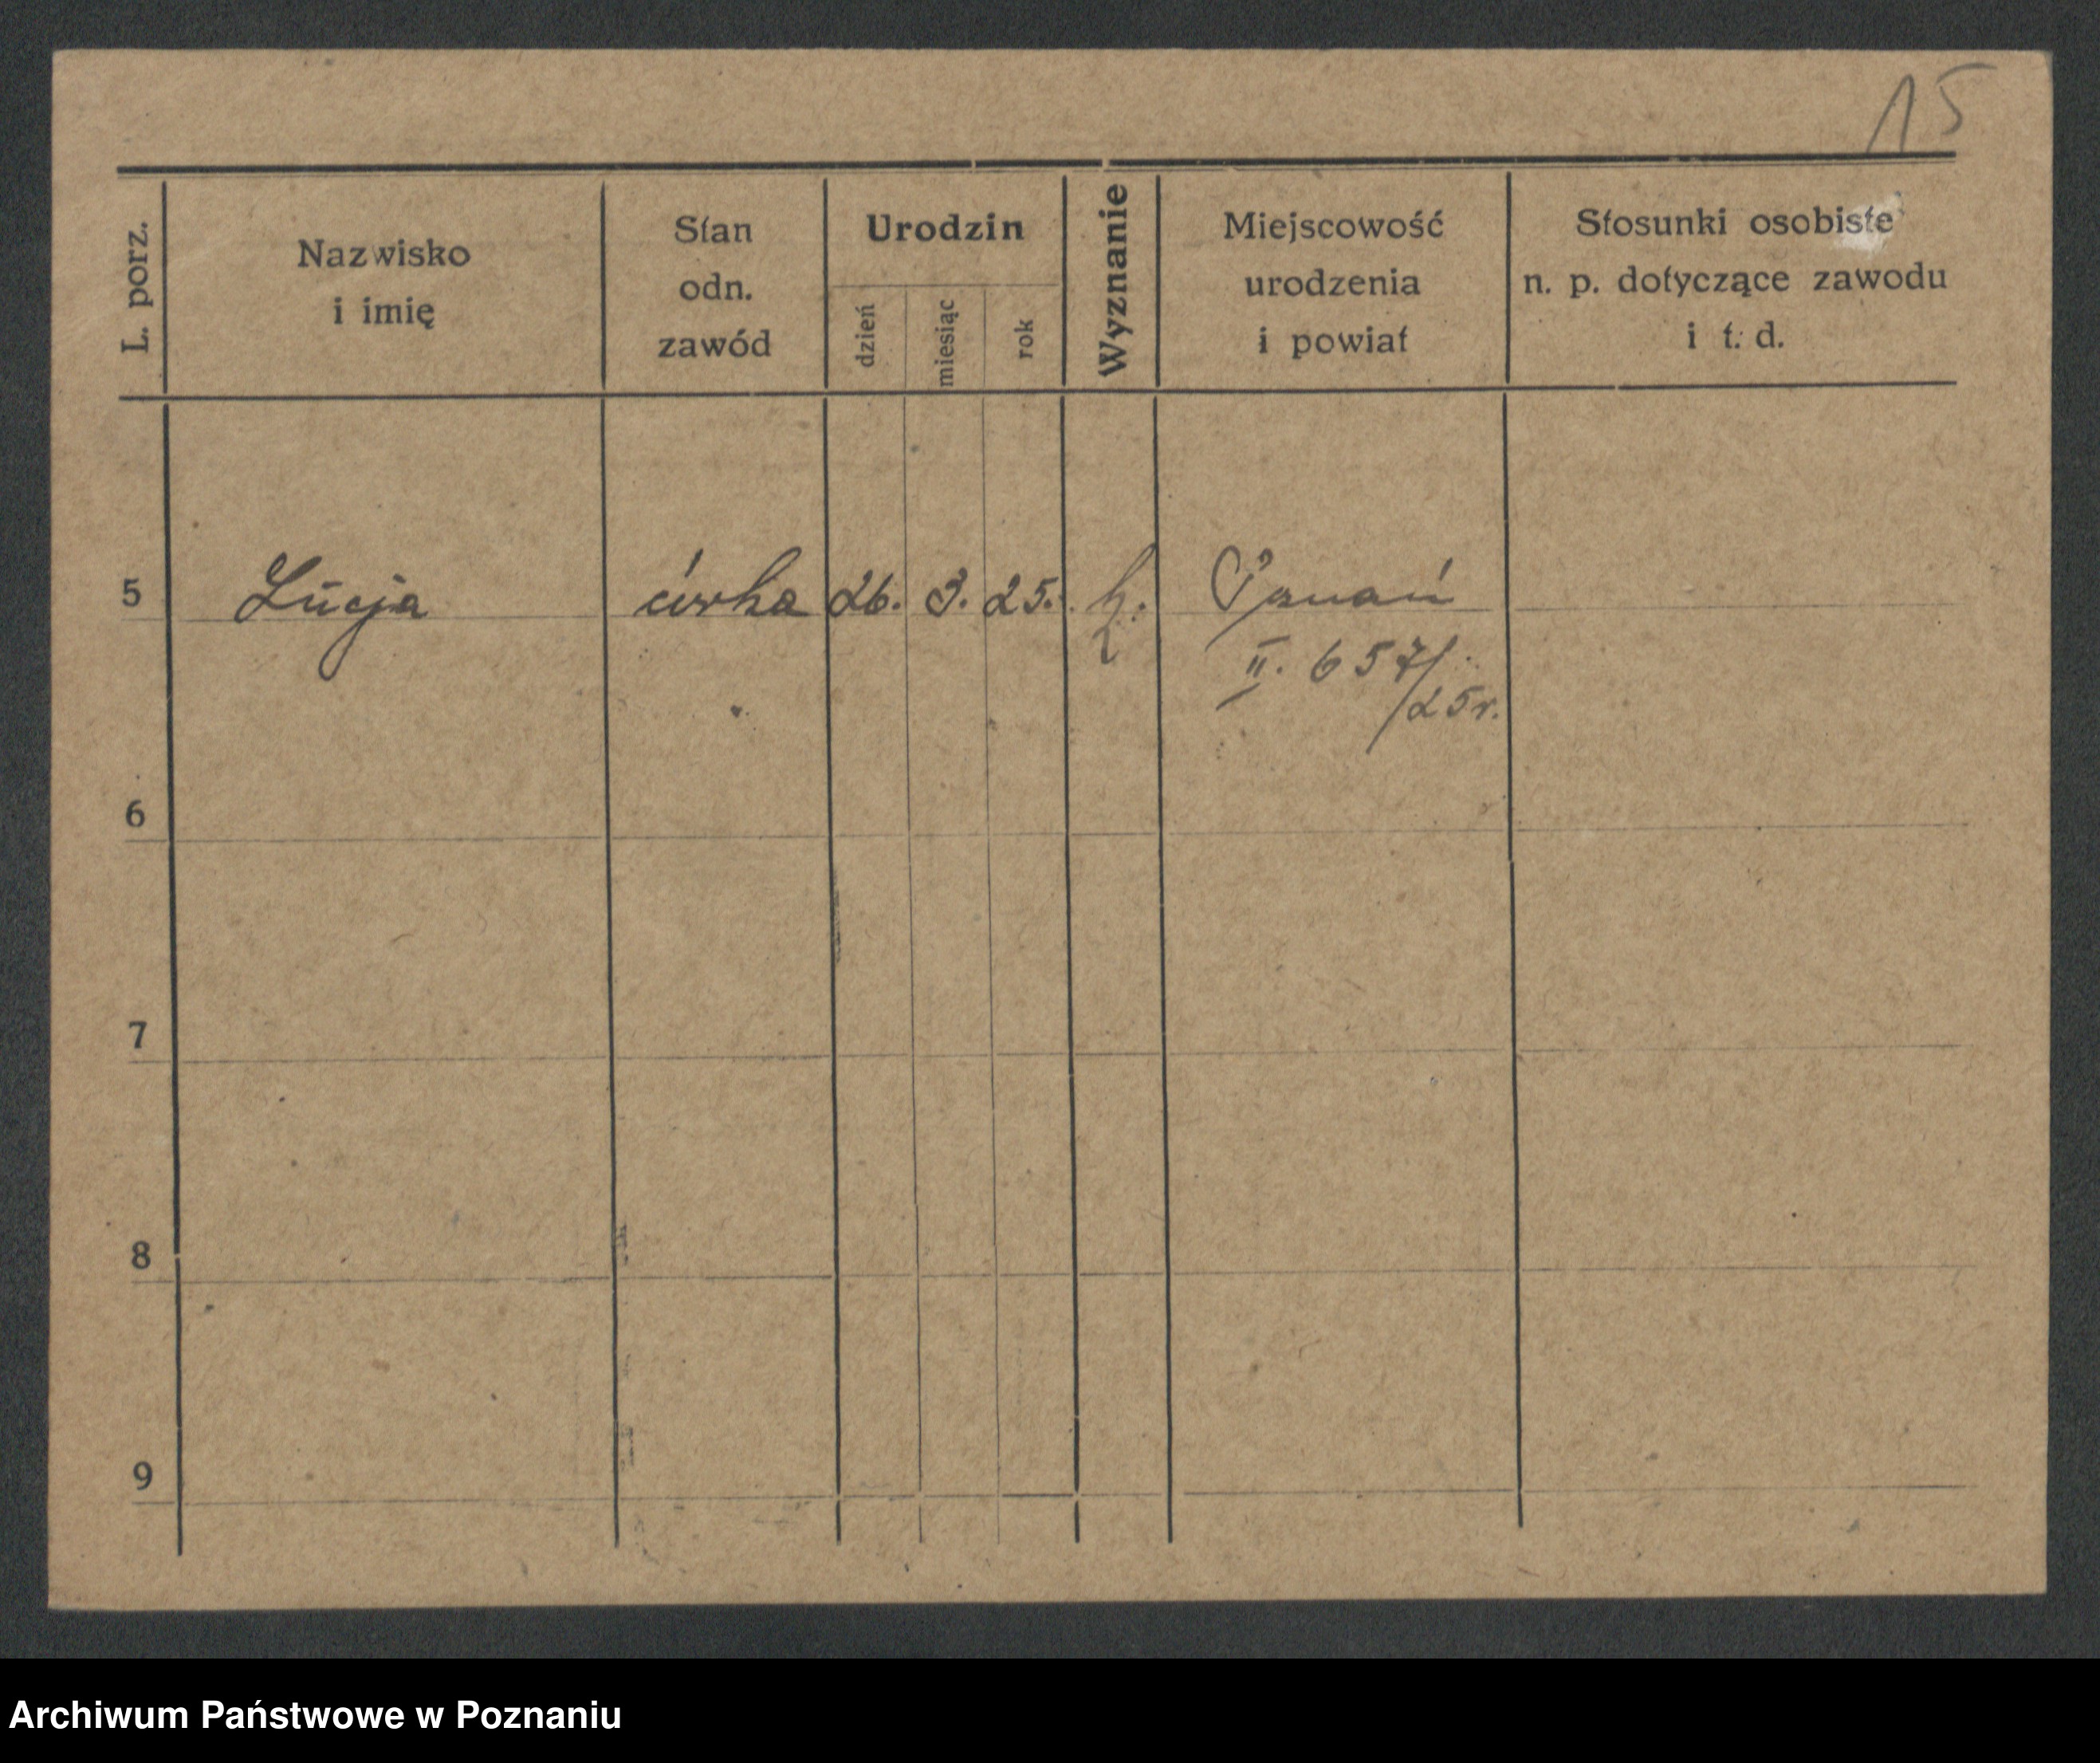 15
L. porz.
Nazwisko
i imię
Stan
odn.
zawód
Urodzin
dzień
miesiąc
rok
Wyznanie
Miejscowość
urodzenia
i powiat
Stosunki osobiste
n. p. dotyczące zawodu
i t. d.
5 Łucja córka 26. 3. 25. k. Poznań
II. 657/25r.
6
7
8
9
Archiwum Państwowe w Poznaniu